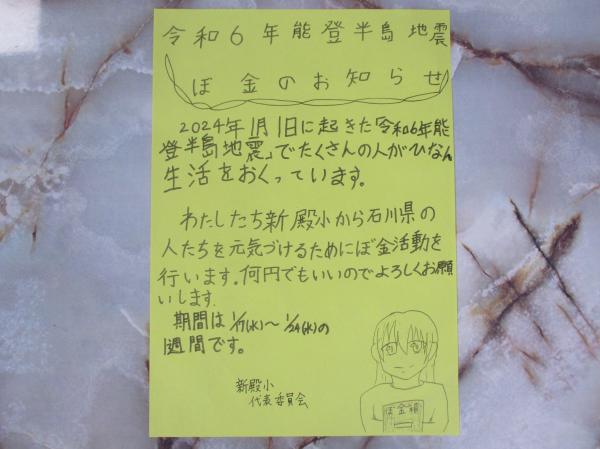 令和6年能登半島地震
ぼ金のお知らせ
2024年1月1日に起きた「令和6年能
登半島地震」でたくさんの人がひなん
生活をおくっています。
わたしたち新殿小から石川県の
人たちを元気づけるためにぼ金活動を
行います。何円でもいいのでよろしくお願
いします.
期間は1/17(水)～1/24(水)の
1週間です。
新殿小
代表委員会
ぼ金箱